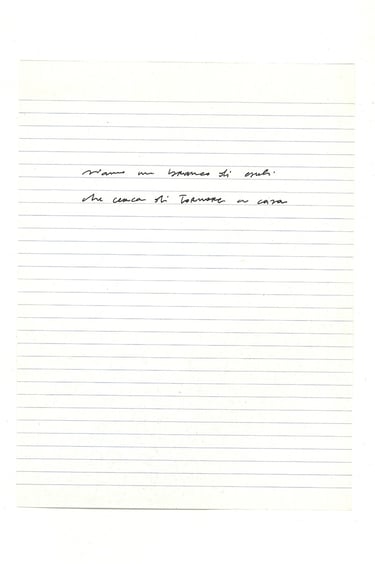 siamo un branco di esuli
che cerca di TORNARE a casa